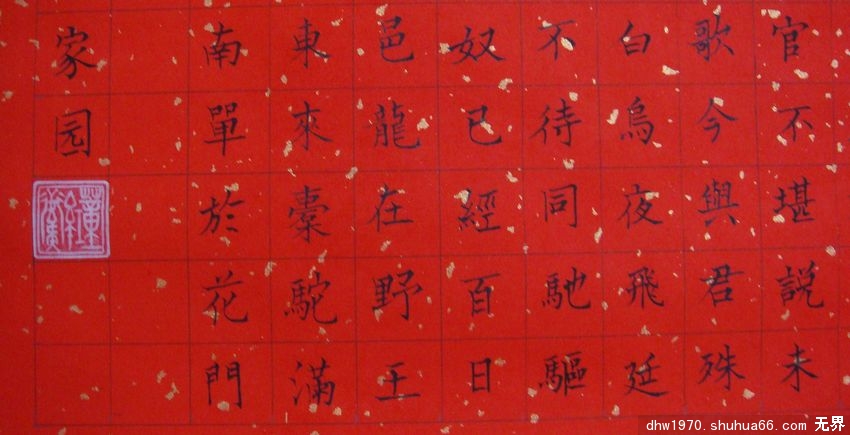 官不堪説未
歌今與君殊
白烏夜飛延
不待同馳驅
奴已經百日
邑龍在野王
東來橐駝滿
南單於花門
家园
dhw1970.shuhua66.com 无界